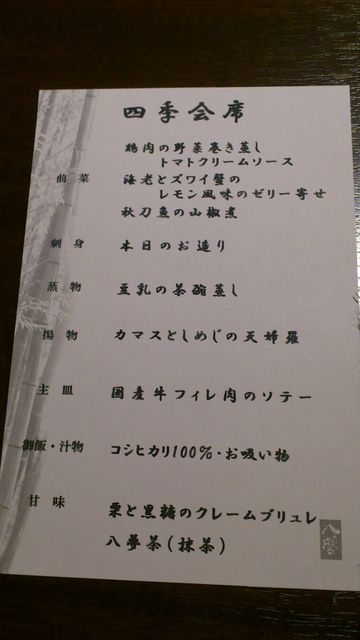 四季会席
鶏肉の野菜巻き蒸し
トマトクリームソース
前菜 海老とズワイ蟹の
レモン風味のゼリー寄せ
秋刀魚の山椒煮
刺身 本日のお造り
蒸物 豆乳の茶碗蒸し
揚物 カマスとしめじの天婦羅
主皿 国産牛フィレ肉のソテー
御飯・汁物 コシヒカリ100%・お吸い物
甘味 栗と黒糖のクレームブリュレ
八夢茶(抹茶)
八夢